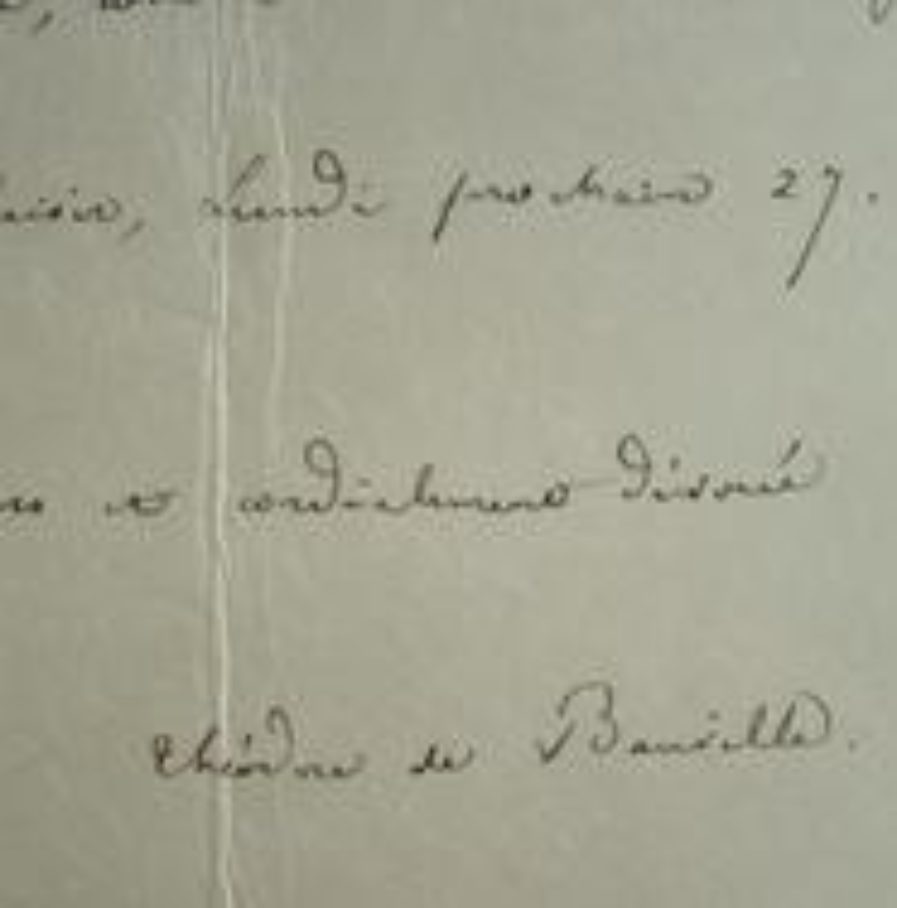 lundi prochain 27.
et cordialement dévoué
Théodore de Banville.